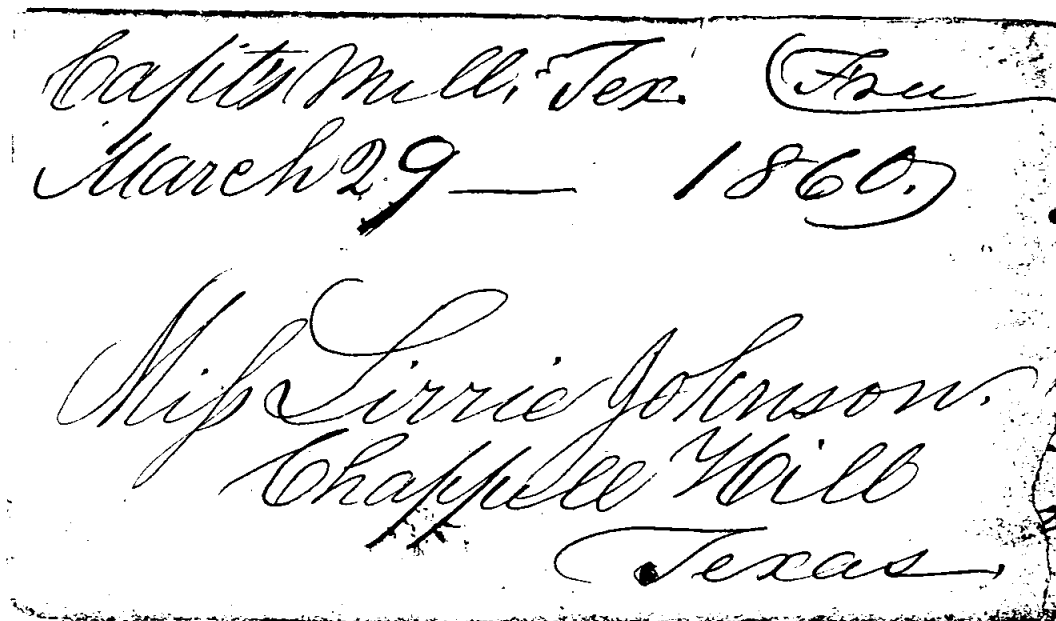 Capt's Mill, Tex. Free
March 29 — 1860.
Miss Lizzie Johnson.
Chappell Hill
Texas